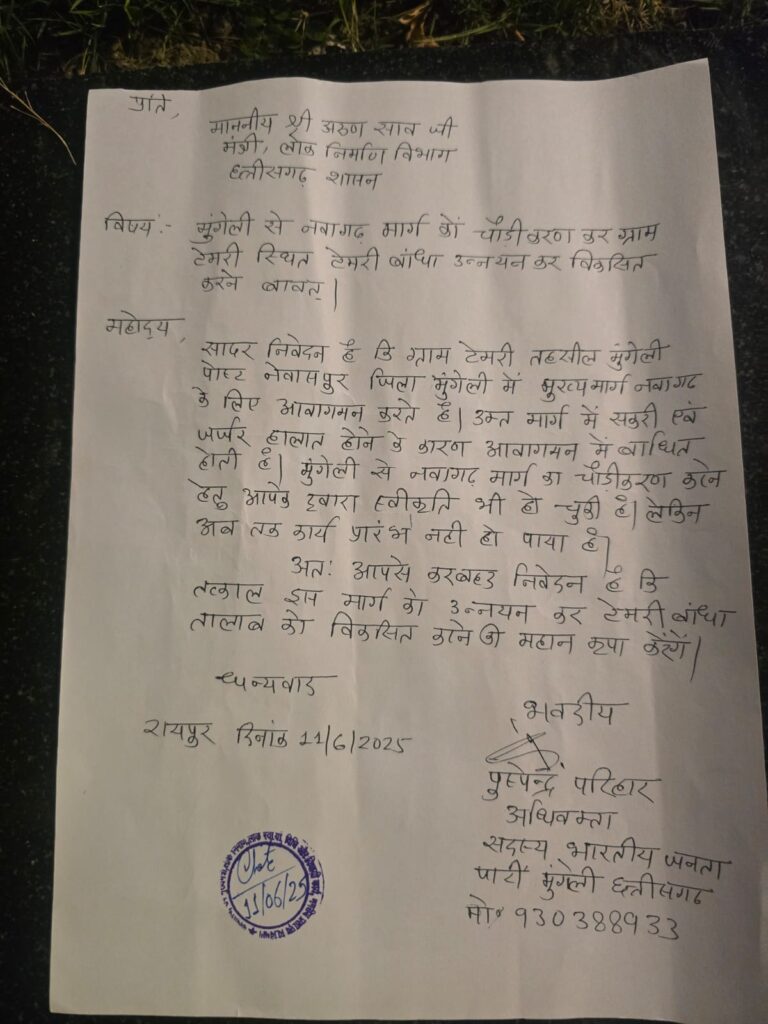 प्रति,
माननीय श्री अरुण साव जी
मंत्री, लोक निर्माण विभाग
छत्तीसगढ़ शासन
विषय:- मुंगेली से नवागढ़ मार्ग को चौड़ीकरण कर ग्राम
टेमरी स्थित टेमरी बांधा उन्नयन कर विकसित
करने बाबत्।
महोदय,
सादर निवेदन है कि ग्राम टेमरी तहसील मुंगेली
पोष्ट नेवासपुर जिला मुंगेली में मुख्यमार्ग नवागढ़
के लिए आवागमन करते है। उक्त मार्ग में सकरी एवं
जर्जर हालात होने के कारण आवागमन में बाधित
होती है। मुंगेली से नवागढ़ मार्ग का चौड़ीकरण करने
हेतु आपके द्वारा स्वीकृति भी हो चुकी है। लेकिन
अब तक कार्य प्रारंभ नही हो पाया है।
अत: आपसे करबद्ध निवेदन है कि
तत्काल इस मार्ग को उन्नयन कर टेमरी बांधा
तालाब को विकसित करने की महान कृपा करेंगें।
धन्यवाद
भवदीय
रायपुर दिनांक 11/6/2025
पुष्पेन्द्र परिहार
अधिवक्ता
सदस्य भारतीय जनता
पार्टी मुंगेली छत्तीसगढ़
मो॰ 930388933
11/06/25